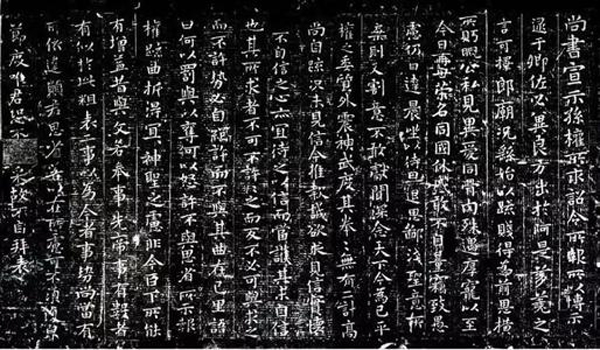 尚書宣示孫權所求詔令所報所以博示
逮于卿佐必冀良方出於阿是芻蕘之
言可擇郎廟況繇始以疏賤得為前恩橫
所眄睨公私見異愛同骨肉殊遇厚寵以至
今日再世榮名同國休慼敢不自量竊致愚
慮仍日達晨坐以待旦退思鄙淺聖意所
棄則又割意不敢獻聞深念天下今為已平
權之委質外震神武度其拳拳無有二計高
尚自疏況未見信今推款誠欲求見信實懷
不自信之心亦宜待之以信而當護其未自信
也其所求者不可不許許之而反不必可與求之
而不許勢必自絕許而不與其曲在己里語
曰何以罰與以奪何以怒許不與思省所示報
權疏曲折得宜宜神聖之慮非今臣下所能
有增益昔與文若奉事先帝事有數者
有似於此粗表二事以為今者事勢尚當有
所依違願君思省若以在所慮可不須復貌
節度唯君恐不采故不自拜表